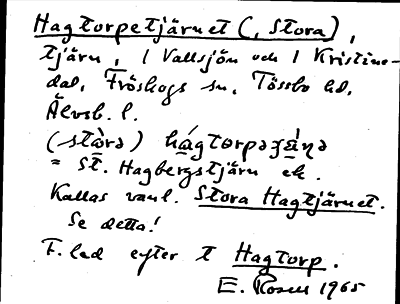 Hagtorpetjärnet (, Stora),
tjärn, i Vallsjön och i Kristine-
dal, Fröskogs sn, Tössbo hd,
Älvsb. l.
(stòrə) hágtorpəʒä̀ṇə
= St. Hagbergstjärn ek.
Kallas vanl. Stora Hagtjärnet.
Se detta!
F. led efter t Hagtorp.
E. Rosell 1965